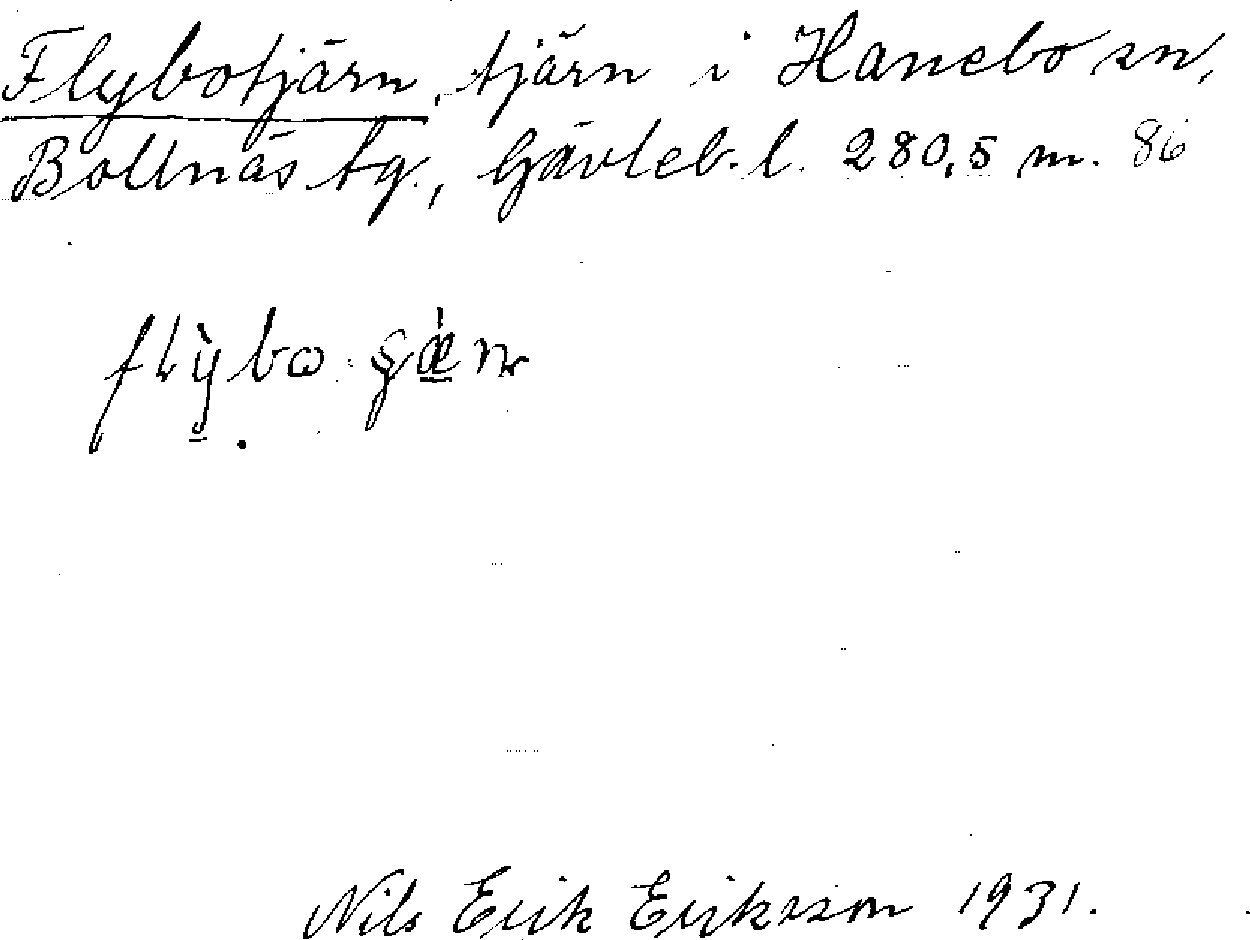 Flybotjärn, tjärn i Hanebo sn,
Bollnäs tg., Gävleb. l. 280,5 m. 86
Nils Erik Eriksson 1931.